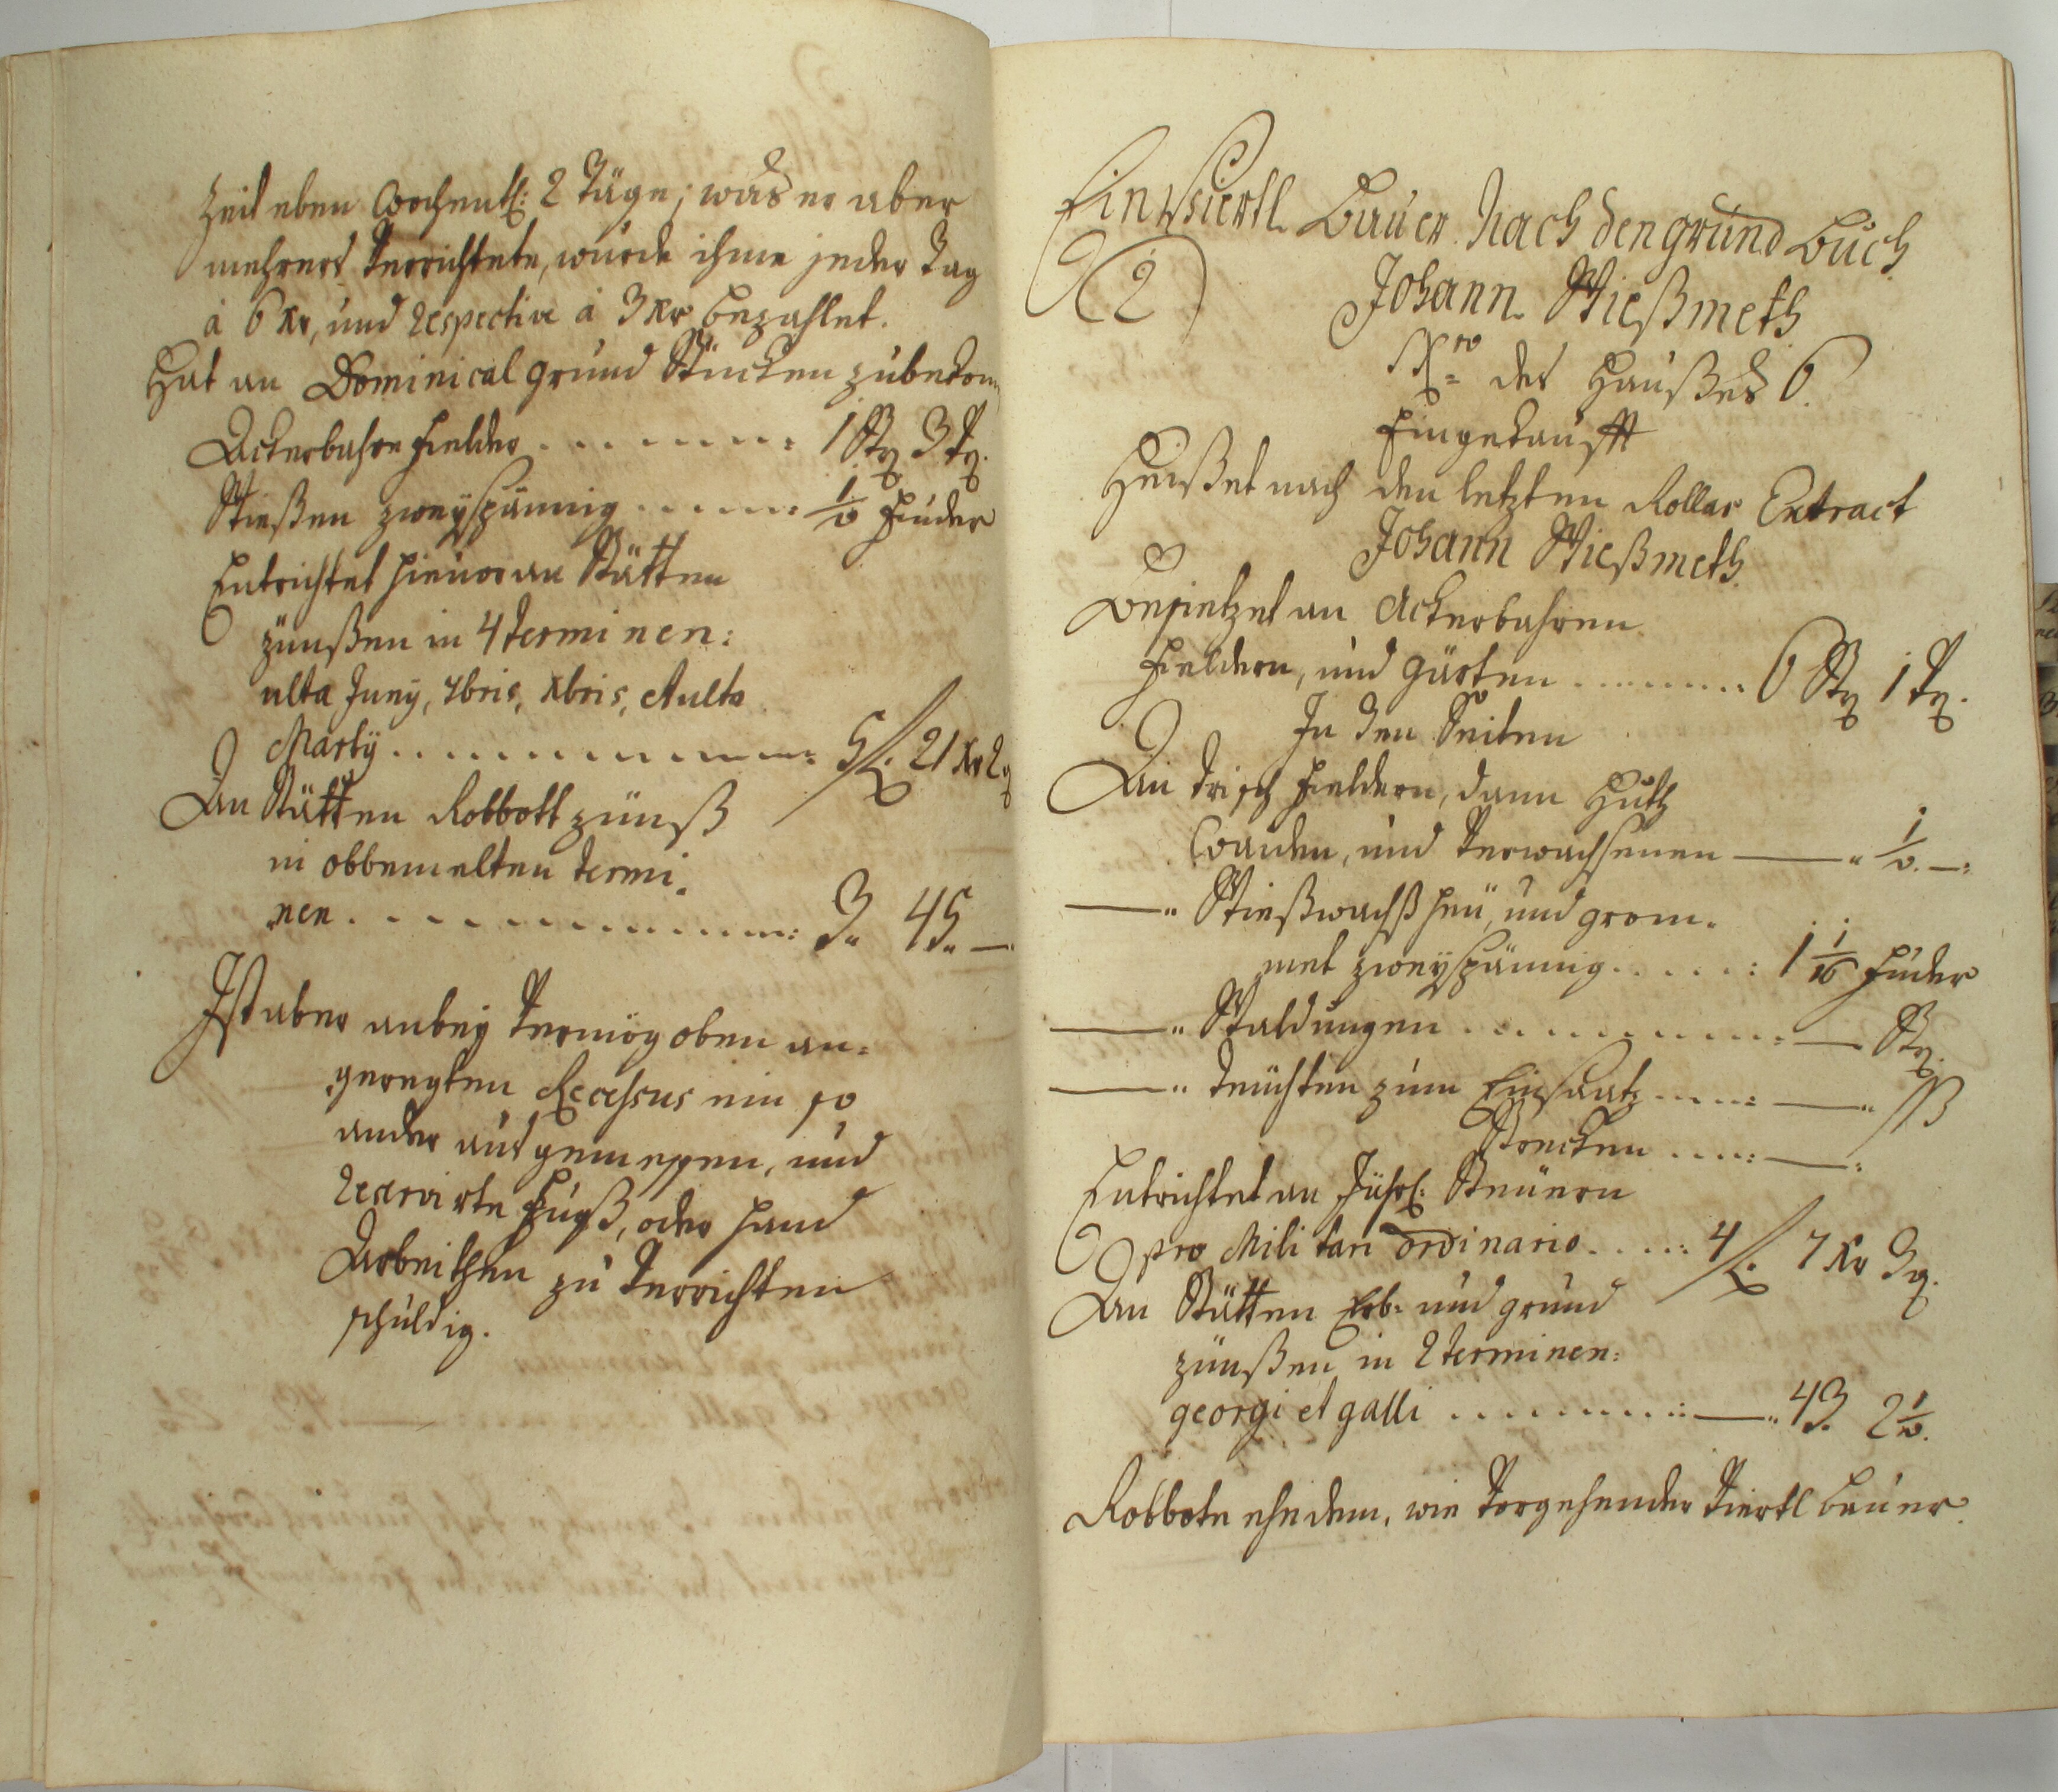 Zeit eben Wochentl: 2 Täge; was er aber
mehrers verrichtete, wurde ihme jeder Tag
à 6 Kr, und respective à 3 Kr bezahlet.
Hat an Dominical grund Stucken zubekom̄
Ackerbahre Fielder . . . . . . . : 1 Str 3 Vr.
Wießen zweyspännig . . . . . : 1/2 Fuder
Entrichtet hievor an Stätten
zünßen in 4 terminen:
ulta Juny, 7bris, Xbris, et ulta
Marty . . . . . . . . . . . . : 5 f. 21 Kr 2 q
An Stätten Robbott zünß
in obbemelten termi,
nen . . . . . . . . . . . . : 3. 45. —
Ist aber anbey vermög oben an=
geregten Recessus ein so
ander ausgemessen, und
reservirte Fuß, oder Hand
Arbeithen zu verrichten
schuldig.
Ein Viertl Bauer Nach den grund Buch
2
Johann Wießmeth
Nro des Haußes 6.
Eingekaufft
Heißet nach den letzten Rollar Extract
Johann Wießmeth
Besietzet an Ackerbahren
Fieldern, und gärten . . . . . . . . . 6 Str 1 Vr.
In den Seiten
An Trisch Fieldern, dann Huth
Waiden, und verwachsenen — „ 1/2. —:
— „ Wießwachß heü, und grom=
met zweyspännig . . . . . . : 1 1/16 Fuder
— „ Waldungen . . . . . . . . . . : — Str.
— „ Teüchten zum Einsaatz . . . . : — „ ß
Strecken . . . . : — :
Entrichtet an Jährl: Steüern
pro Militari ordinario . . . . : 4 f. 7 Kr 3 q.
An Stätten Erb= und grund
zünßen in 2 terminen:
georgi et galli . . . . . . . . . : — „ 43. 2 1/2.
Robbote ehedem, wie vorgehender Viertl Bauer.